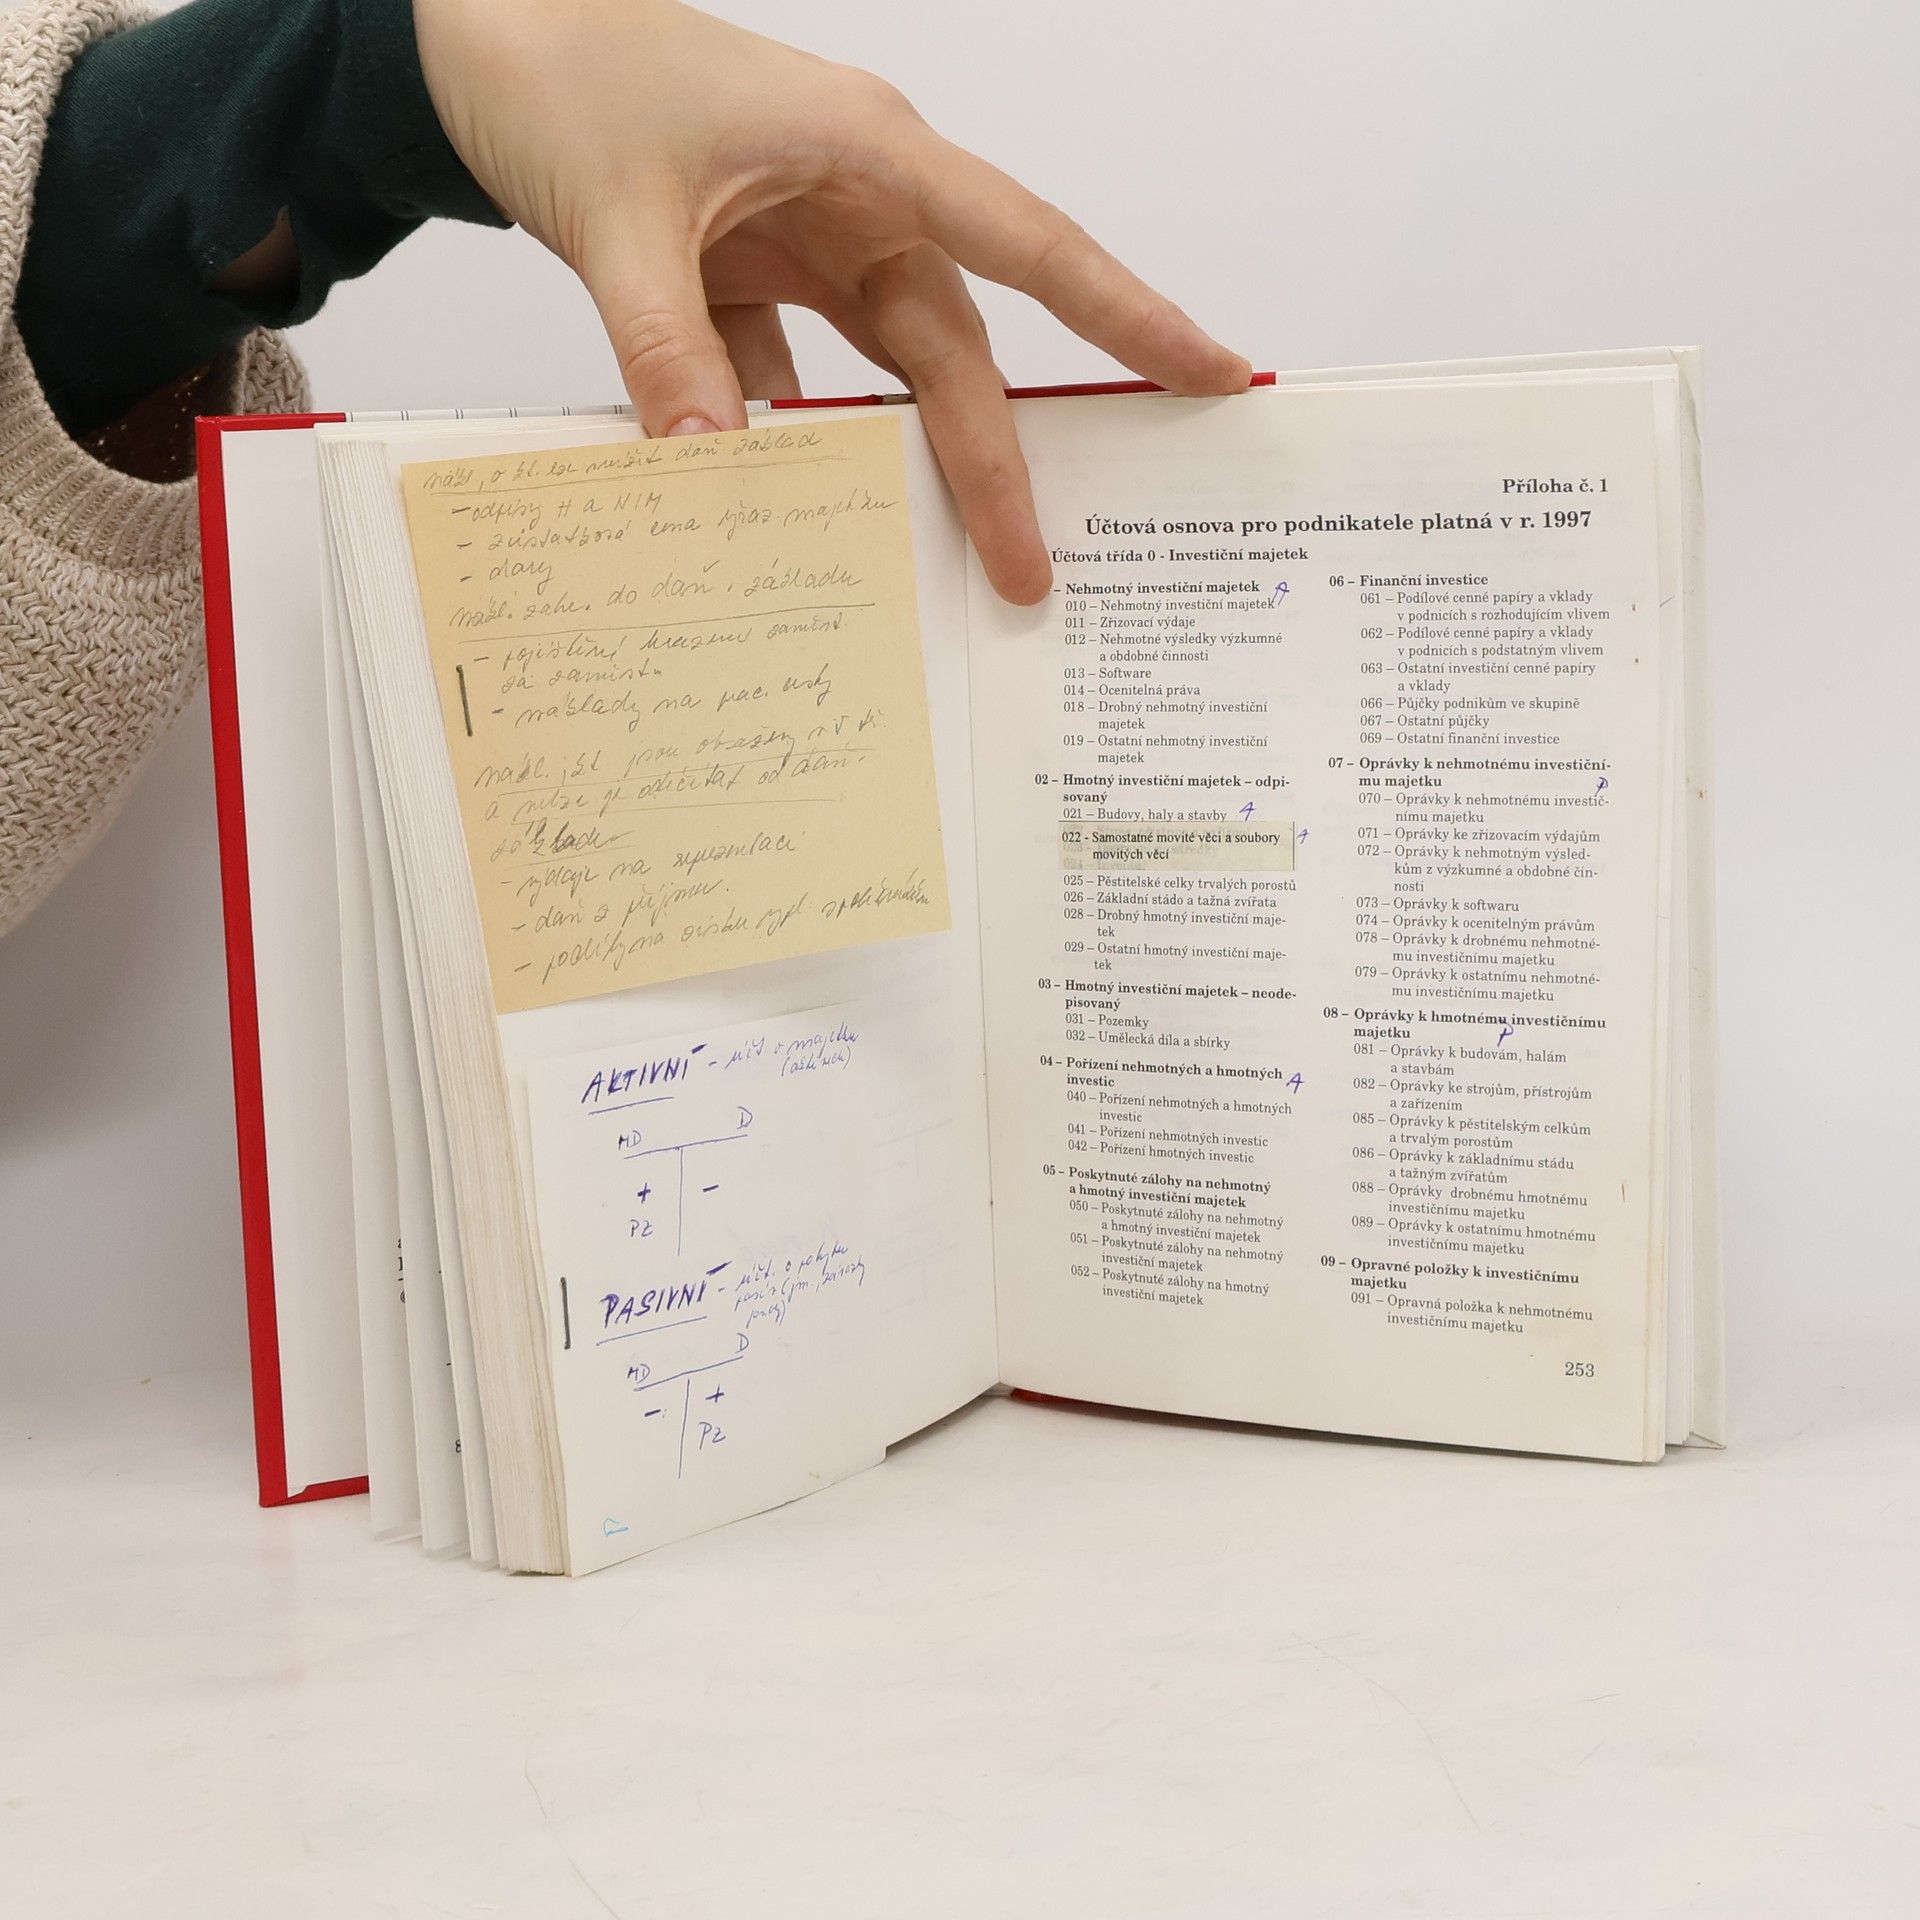 - odpisy H a NIM
- zůstatková cena vyřaz. majetku
- dary
- náklady na prac. cesty
- výdaje na reprezentaci
- daň z příjmu.
AKTIVNÍ - účt o majetku
MD D
+ -
PZ
PASIVNÍ - účt. o pohybu
MD D
- +
PZ
Příloha č. 1
Účtová osnova pro podnikatele platná v r. 1997
Účtová třída 0 - Investiční majetek
– Nehmotný investiční majetek A
010 – Nehmotný investiční majetek
011 – Zřizovací výdaje
012 – Nehmotné výsledky výzkumné
a obdobné činnosti
013 – Software
014 – Ocenitelná práva
018 – Drobný nehmotný investiční
majetek
019 – Ostatní nehmotný investiční
majetek
02 – Hmotný investiční majetek – odpi-
sovaný
021 – Budovy, haly a stavby A
022 - Samostatné movité věci a soubory A
movitých věcí
025 – Pěstitelské celky trvalých porostů
026 – Základní stádo a tažná zvířata
028 – Drobný hmotný investiční maje-
tek
029 – Ostatní hmotný investiční maje-
tek
03 – Hmotný investiční majetek – neode-
pisovaný
031 – Pozemky
032 – Umělecká díla a sbírky
04 – Pořízení nehmotných a hmotných
investic A
040 – Pořízení nehmotných a hmotných
investic
041 – Pořízení nehmotných investic
042 – Pořízení hmotných investic
05 – Poskytnuté zálohy na nehmotný
a hmotný investiční majetek
050 – Poskytnuté zálohy na nehmotný
a hmotný investiční majetek
051 – Poskytnuté zálohy na nehmotný
investiční majetek
052 – Poskytnuté zálohy na hmotný
investiční majetek
06 – Finanční investice
061 – Podílové cenné papíry a vklady
v podnicích s rozhodujícím vlivem
062 – Podílové cenné papíry a vklady
v podnicích s podstatným vlivem
063 – Ostatní investiční cenné papíry
a vklady
066 – Půjčky podnikům ve skupině
067 – Ostatní půjčky
069 – Ostatní finanční investice
07 – Oprávky k nehmotnému investiční-
mu majetku P
070 – Oprávky k nehmotnému investič-
nímu majetku
071 – Oprávky ke zřizovacím výdajům
072 – Oprávky k nehmotným výsled-
kům z výzkumné a obdobné čin-
nosti
073 – Oprávky k softwaru
074 – Oprávky k ocenitelným právům
078 – Oprávky k drobnému nehmotné-
mu investičnímu majetku
079 – Oprávky k ostatnímu nehmotné-
mu investičnímu majetku
08 – Oprávky k hmotnému investičnímu
majetku P
081 – Oprávky k budovám, halám
a stavbám
082 – Oprávky ke strojům, přístrojům
a zařízením
085 – Oprávky k pěstitelským celkům
a trvalým porostům
086 – Oprávky k základnímu stádu
a tažným zvířatům
088 – Oprávky drobnému hmotnému
investičnímu majetku
089 – Oprávky k ostatnímu hmotnému
investičnímu majetku
09 – Opravné položky k investičnímu
majetku
091 – Opravná položka k nehmotnému
investičnímu majetku
253